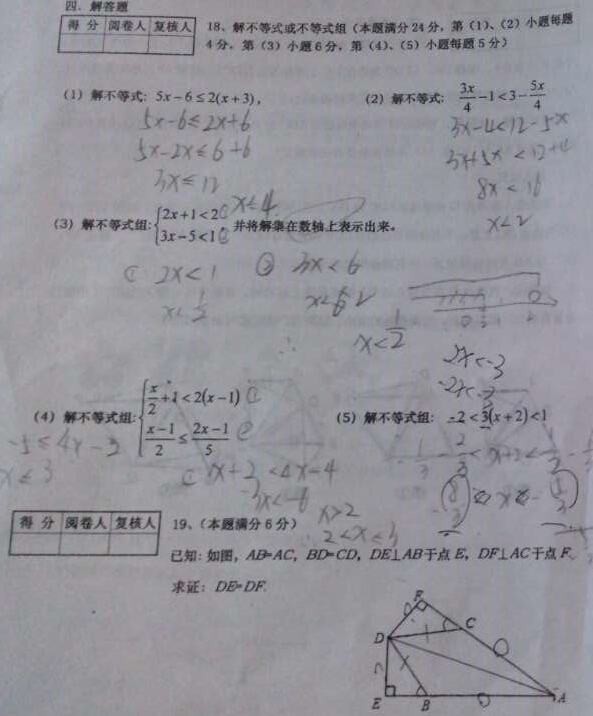 四、解答题
得 分 阅卷人 复核人
18、解不等式或不等式组（本题满分24分，第（1）、（2）小题每题
4分，第（3）小题6分，第（4）、（5）小题每题5分）
（1）解不等式：5x-6≤2(x+3)，
5x-6≤2x+6
5x-2x≤6+6
3x≤12
x≤4
（2）解不等式：3x/4-1<3-5x/4
3x-4<12-5x
3x+5x<12+4
8x<16
x<2
（3）解不等式组：{2x+1<2① 3x-5<1② 并将解集在数轴上表示出来。
① 2x<1
x<1/2
② 3x<6
x<2
∴ x<1/2
（4）解不等式组：{x/2+1<2(x-1)① (x-1)/2≤(2x-1)/5②
-5≤4x-2
x≤3
① x+2<4x-4
-3x<-6
x>2
2<x≤3
（5）解不等式组：-2<3(x+2)<1
得 分 阅卷人 复核人
19、（本题满分6分）
已知：如图，AB=AC，BD=CD，DE⊥AB于点E，DF⊥AC于点F。
求证：DE=DF.
F
C
D
E
B
A